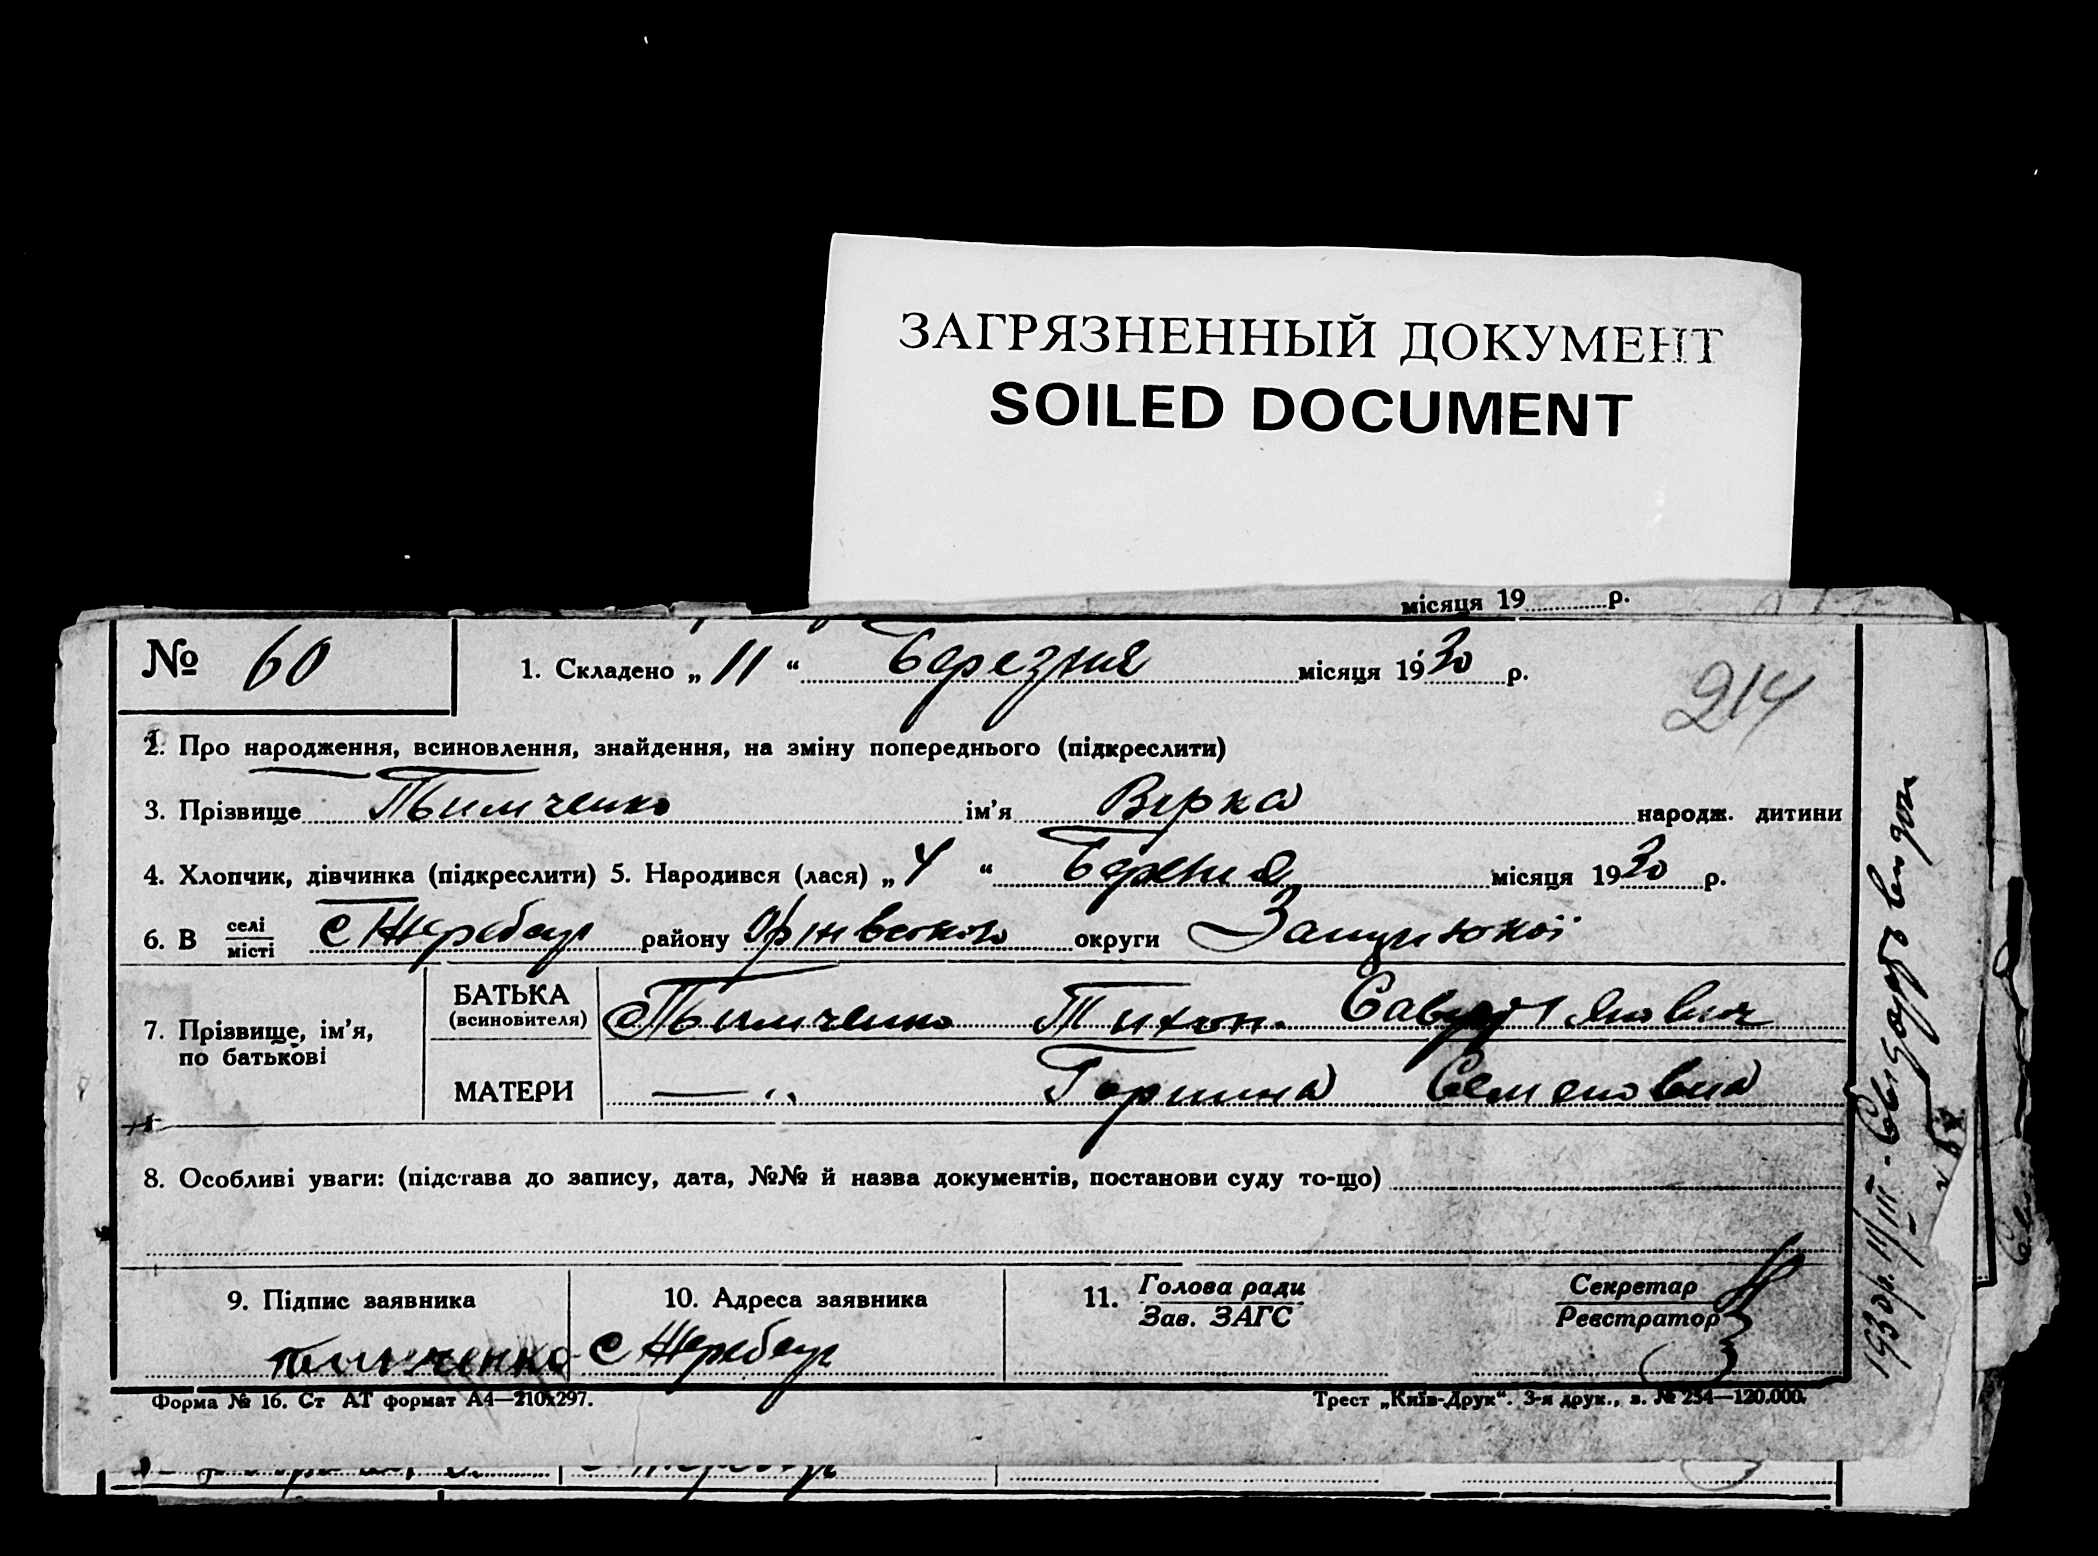 ЗАГРЯЗНЕННЫЙ ДОКУМЕНТ
SOILED DOCUMENT
місяця 19 р.
№ 60
1. Складено „ 11 “ Березня місяця 1930 р.
214
2. Про народження, всиновлення, знайдення, на зміну попереднього (підкреслити)
3. Прізвище Тымченко ім'я Вірка народж. дитини
4. Хлопчик, дівчинка (підкреслити) 5. Народився (лася) „ 4 “ Березня місяця 1930 р.
6. В селі місті с Жеребець району округи
7. Прізвище, ім'я, по батькові
БАТЬКА (всиновителя) Тымченко Тихон
МАТЕРИ — „ Горпина Семеновна
8. Особливі уваги: (підстава до запису, дата, №№ й назва документів, постанови суду то-що)
9. Підпис заявника
тымченко
10. Адреса заявника
с Жеребець
11. Голова ради
Зав. ЗАГС
Секретар
Реєстратор
Форма № 16. Ст АТ формат А4—210х297.
Трест „Київ-Друк“. 3-я друк., з. № 234—120.000.
1930 р. 11/III